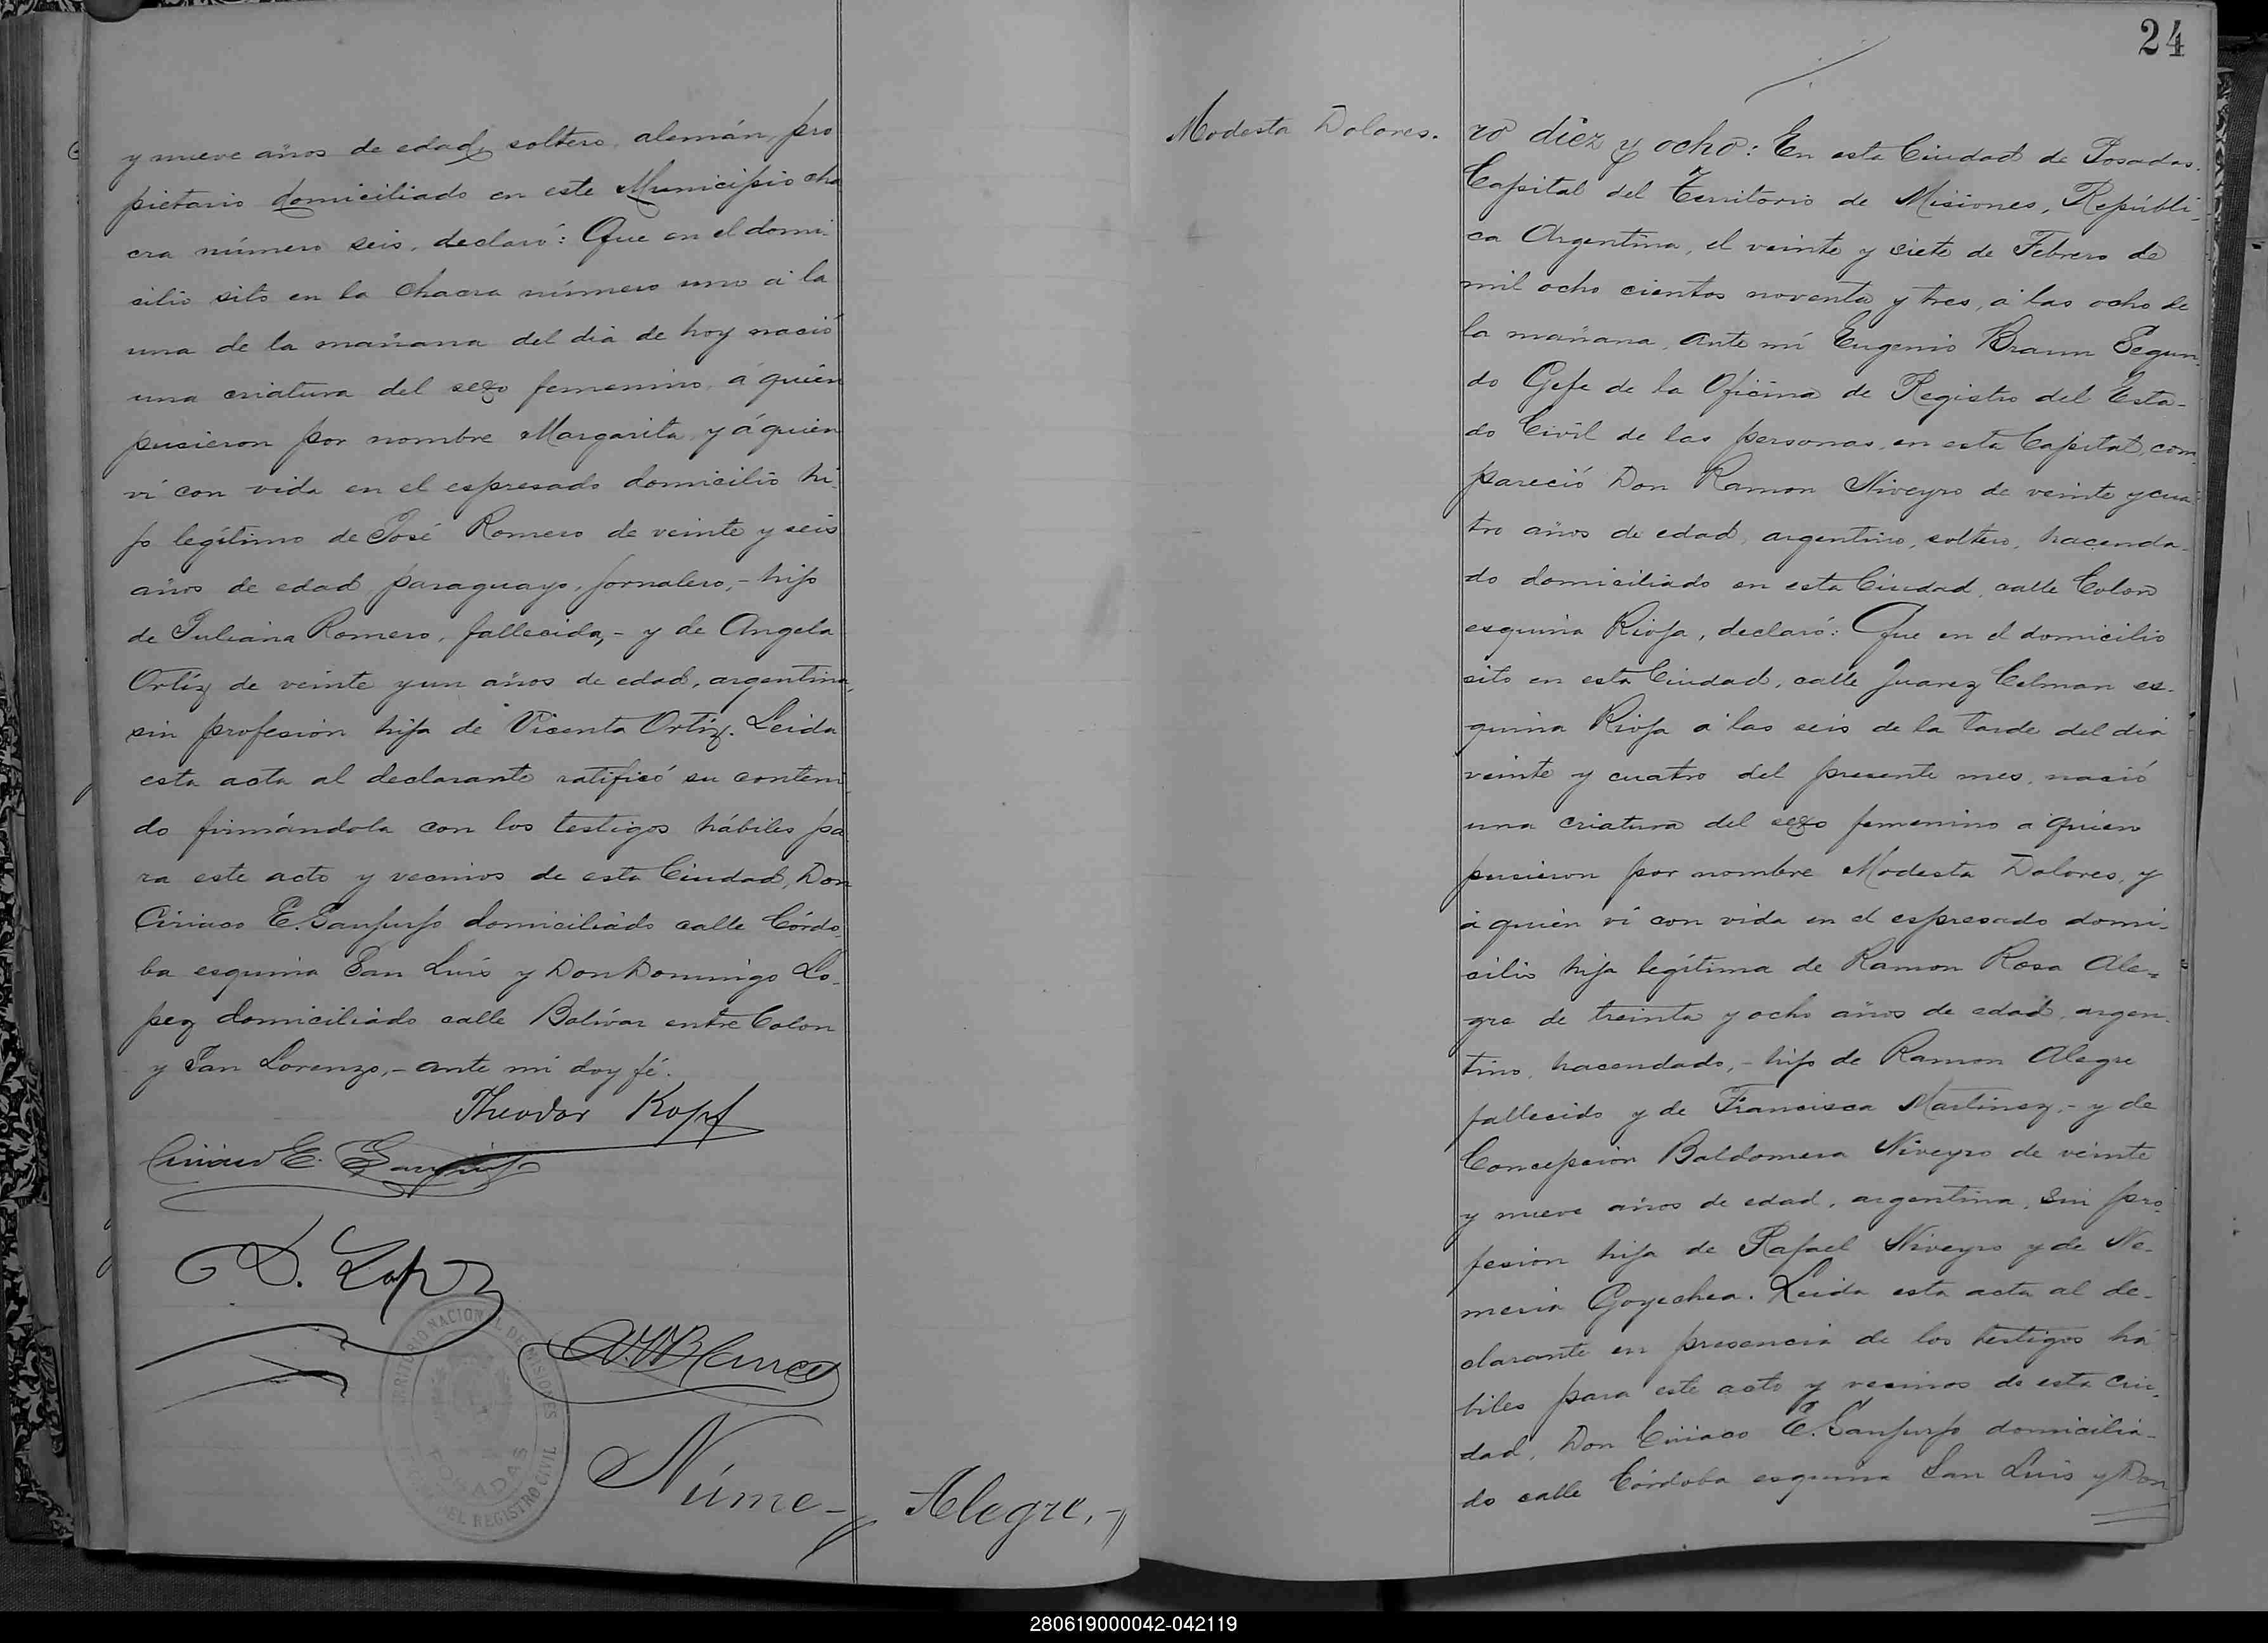 y nueve años de edad, soltero, alemán, pro
pietario domiciliado en este Municipio cha
cra número seis, declaró: Que en el domi-
cilio sito en la chacra número uno á la
una de la mañana del dia de hoy nació
una criatura del sexo femenino, á quien
pusieron por nombre Margarita, y á quien
ví con vida en el espresado domicilio hi-
jo legítimo de José Romero de veinte y seis
años de edad, paraguayo, jornalero, - hijo
de Juliana Romero, fallecida, - y de Angela
Ortíz de veinte y un años de edad, argentina,
sin profesion hija de Vicenta Ortíz. Leida
esta acta al declarante ratificó su conteni
do firmándola con los testigos hábiles pa
ra este acto y vecinos de esta Ciudad, Don
Ciriaco E. Sanjurjo domiciliado calle Córdo-
ba esquina San Luis y Don Domingo Lo-
pez domiciliado calle Bolívar entre Colon
y San Lorenzo, - ante mi doy fé.
Theodor Kopf
Ciriaco E. Sanjurjo
D. Lopez
TERRITORIO NACIONAL DE MISIONES
POSADAS
DEL REGISTRO CIVIL
Núme-
Alegre, -
24
Modesta Dolores.
ro diez y ocho: En esta Ciudad de Posadas.
Capital del Territorio de Misiones, Repúbli-
ca Argentina, el veinte y siete de Febrero de
mil ocho cientos noventa y tres, á las ocho de
la mañana, ante mí Eugenio Braun Segun
do Gefe de la Oficina de Registro del Esta-
do Civil de las personas, en esta Capital, com-
pareció Don Ramon Niveyro de veinte y cua-
tro años de edad, argentino, soltero, hacenda-
do domiciliado en esta Ciudad, calle Colon
esquina Rioja, declaró: Que en el domicilio
sito en esta Ciudad, calle Juarez Celman es-
quina Rioja á las seis de la tarde del dia
veinte y cuatro del presente mes, nació
una criatura del sexo femenino a quien
pusieron por nombre Modesta Dolores, y
á quien ví con vida en el espresado domi-
cilio hija legítima de Ramon Rosa Ale-
gre de treinta y ocho años de edad, argen-
tino, hacendado, - hijo de Ramon Alegre
fallecido y de Francisca Martinez, - y de
Concepcion Baldomera Niveyro de veinte
y nueve años de edad, argentina, sin pro-
fesion hija de Rafael Niveyro y de Ne-
mesia Goyechea. Leida esta acta al de-
clarante en presencia de los testigos há
biles para este acto y vecinos de esta Ciu-
dad, Don Ciriaco E. Sanjurjo domicilia-
do calle Córdoba esquina San Luis y Don
280619000042-042119